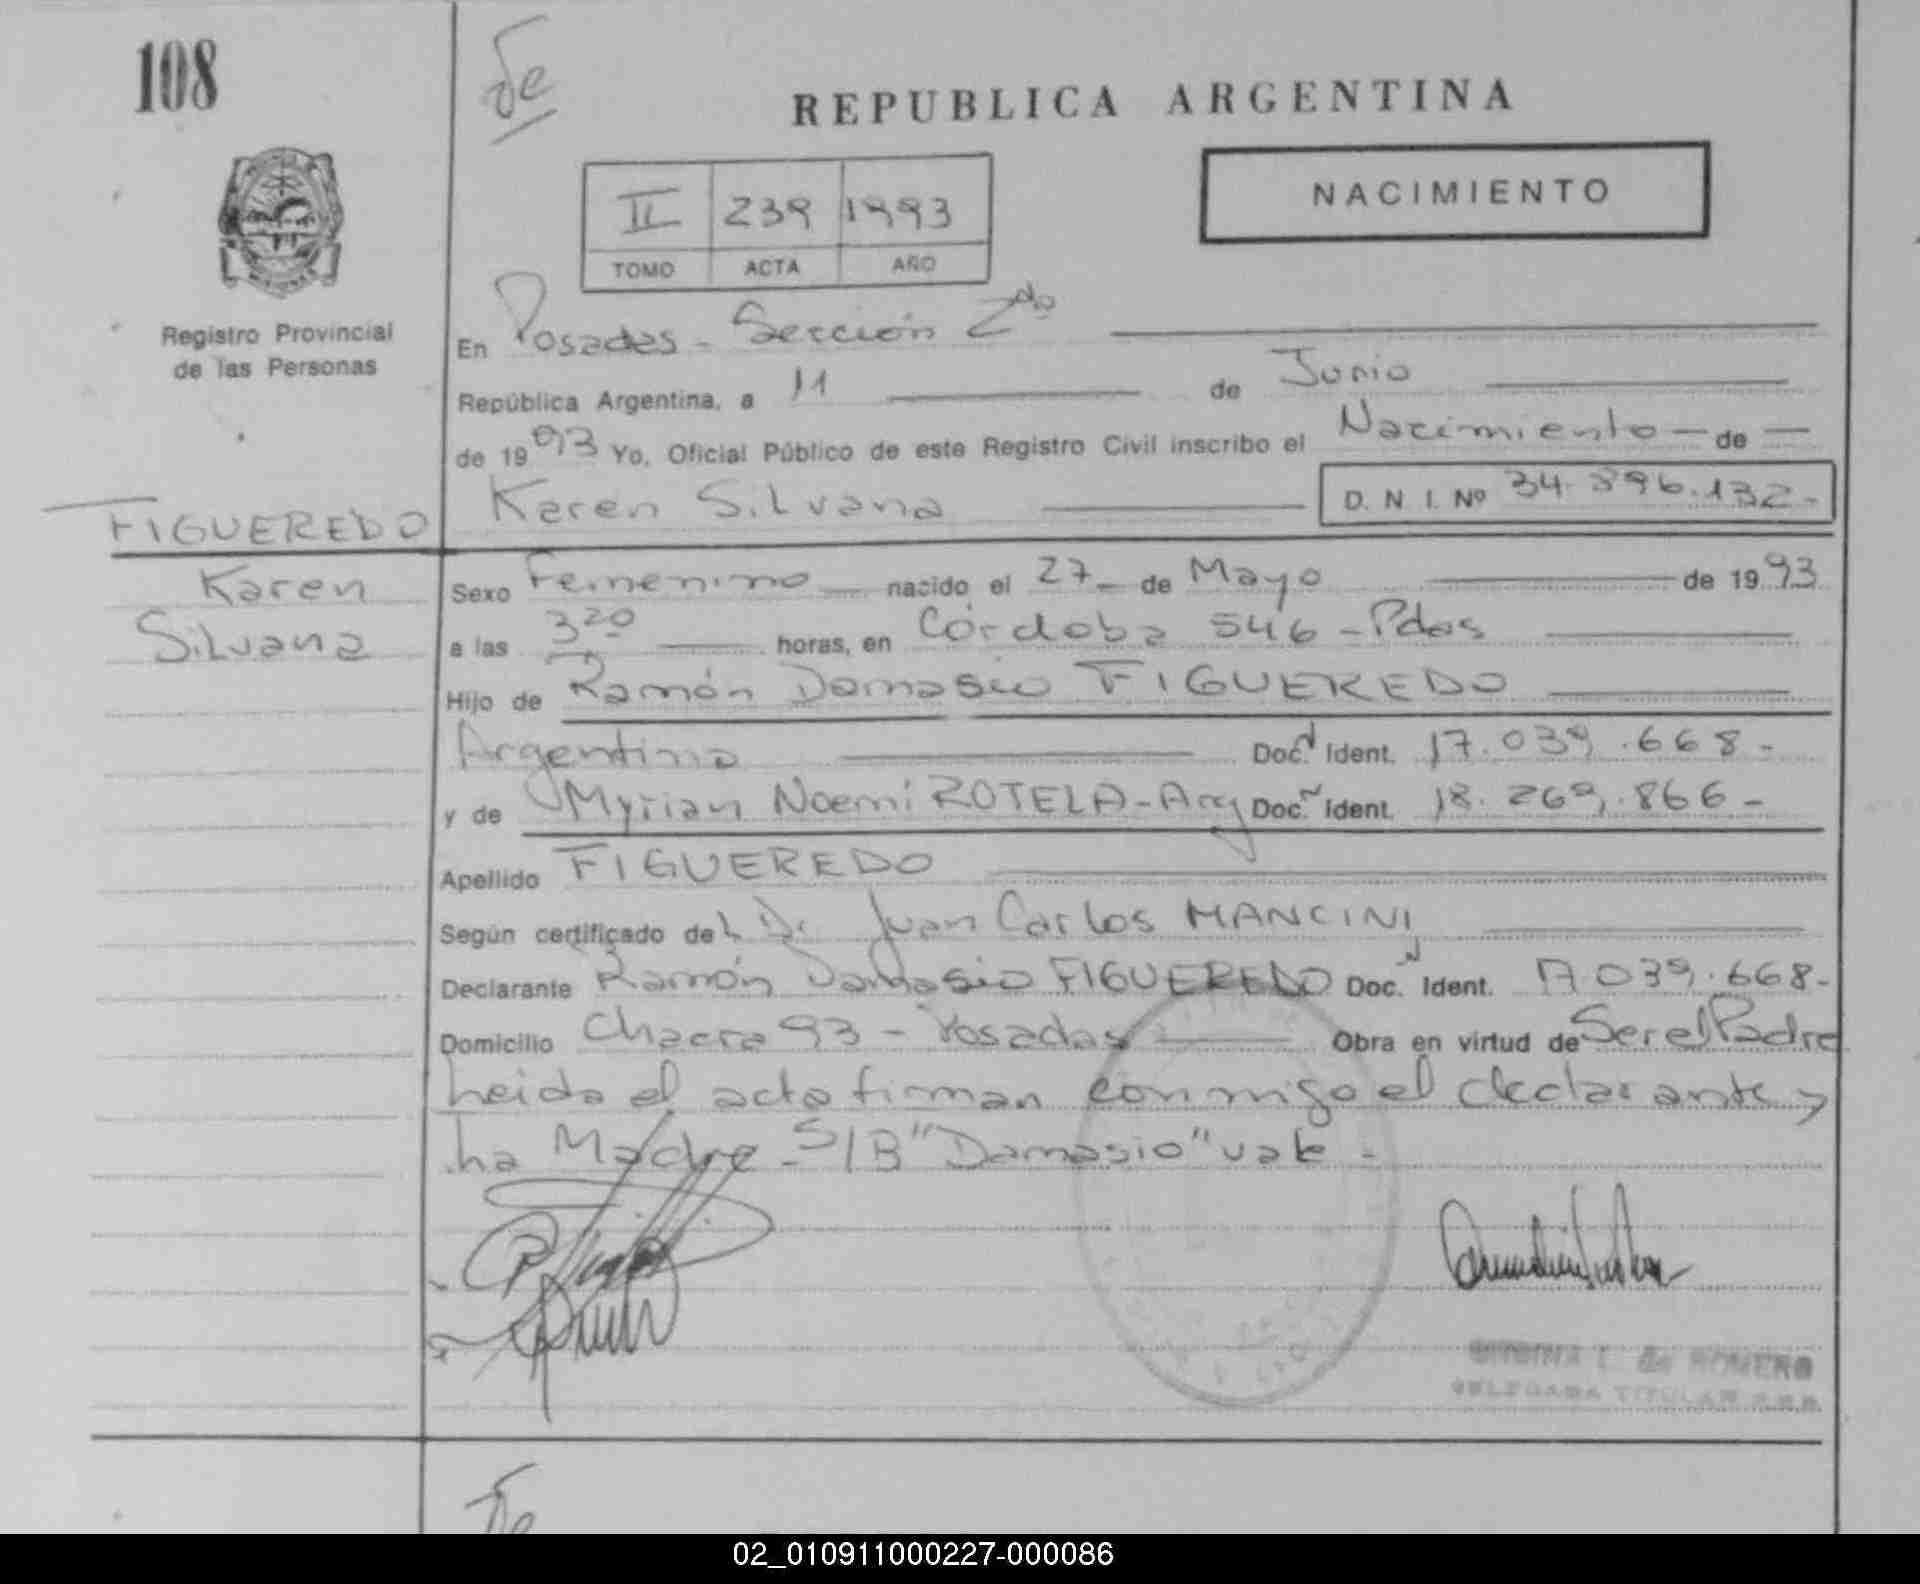 108
REPUBLICA ARGENTINA
II 239 1993
TOMO ACTA AÑO
NACIMIENTO
Registro Provincial
de las Personas
En Posadas - Sección 2da
República Argentina, a 11 de Junio
de 1993 Yo, Oficial Público de este Registro Civil inscribo el Nacimiento - de -
Karen Silvana D. N. I. Nº 34.896.132.-
FIGUEREDO
Karen
Silvana
Sexo Femenino nacido el 27 - de Mayo de 1993
a las 3 20 horas, en Córdoba 546 - Pdas
Hijo de Ramón Damasio FIGUEREDO
Argentina Doc. Ident. 17.039.668-
y de Myrian Noemí ROTELA - Arg Doc. Ident. 18.269.866-
Apellido FIGUEREDO
Según certificado del Dr Juan Carlos MANCINI
Declarante Ramón Damasio FIGUEREDO Doc. Ident. 17039.668-
Domicilio Chacra 93 - Posadas Obra en virtud de Ser el Padre
Leida el acta firman conmigo el declarante y
La Madre - S/B "Damasio" vale -
de ROMERO
DELEGADA TITULAR
02_010911000227-000086